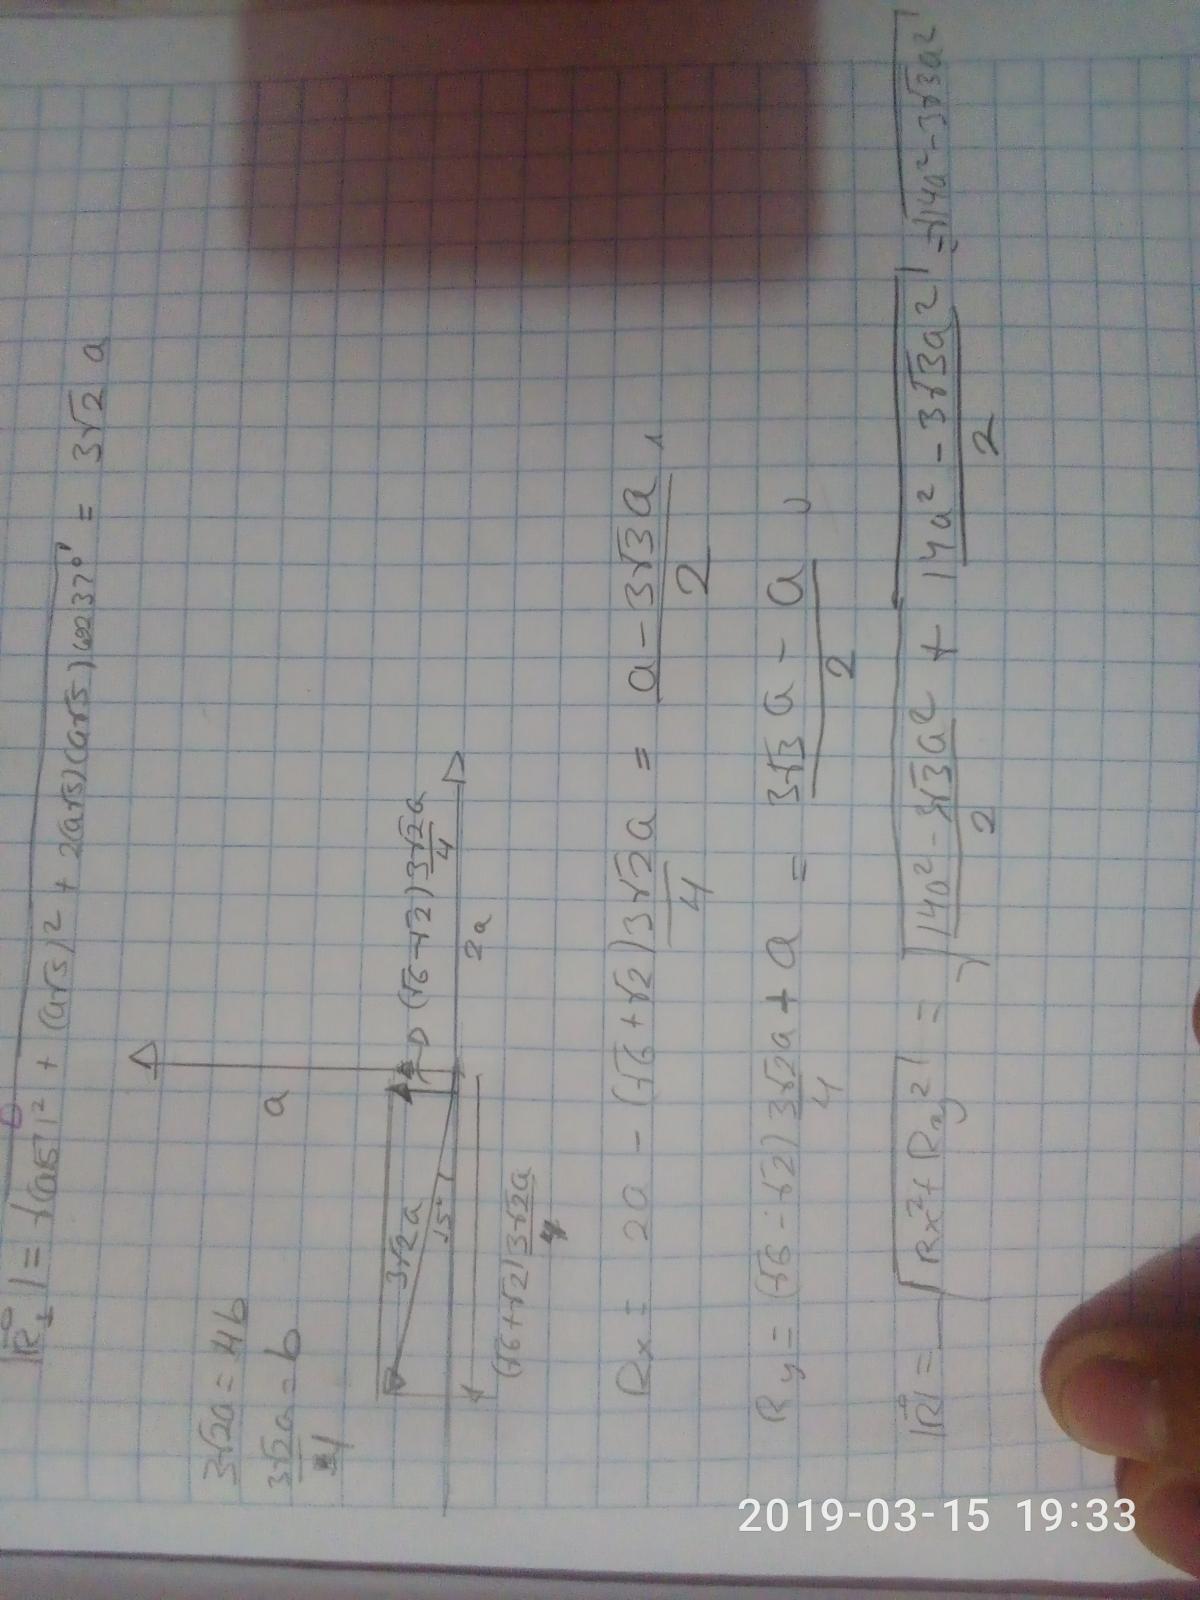 |R₁| = √(a√5)² + (a√5)² + 2(a√5)(a√5)cos37° = 3√2 a
3√2a = 4b
3√2a/4 = b
a
3√2a
15°
(√6-√2)3√2a/4
2a
(√6+√2)3√2a/4
Rx = 2a - (√6+√2)3√2a/4 = a-3√3a/2
Ry = (√6-√2)3√2a/4 + a = 3√3a-a/2
|R| = √Rx²+Ry² = √14a²-3√3a²/2 + 14a²-3√3a²/2 = √14a²-3√3a²
2019-03-15 19:33